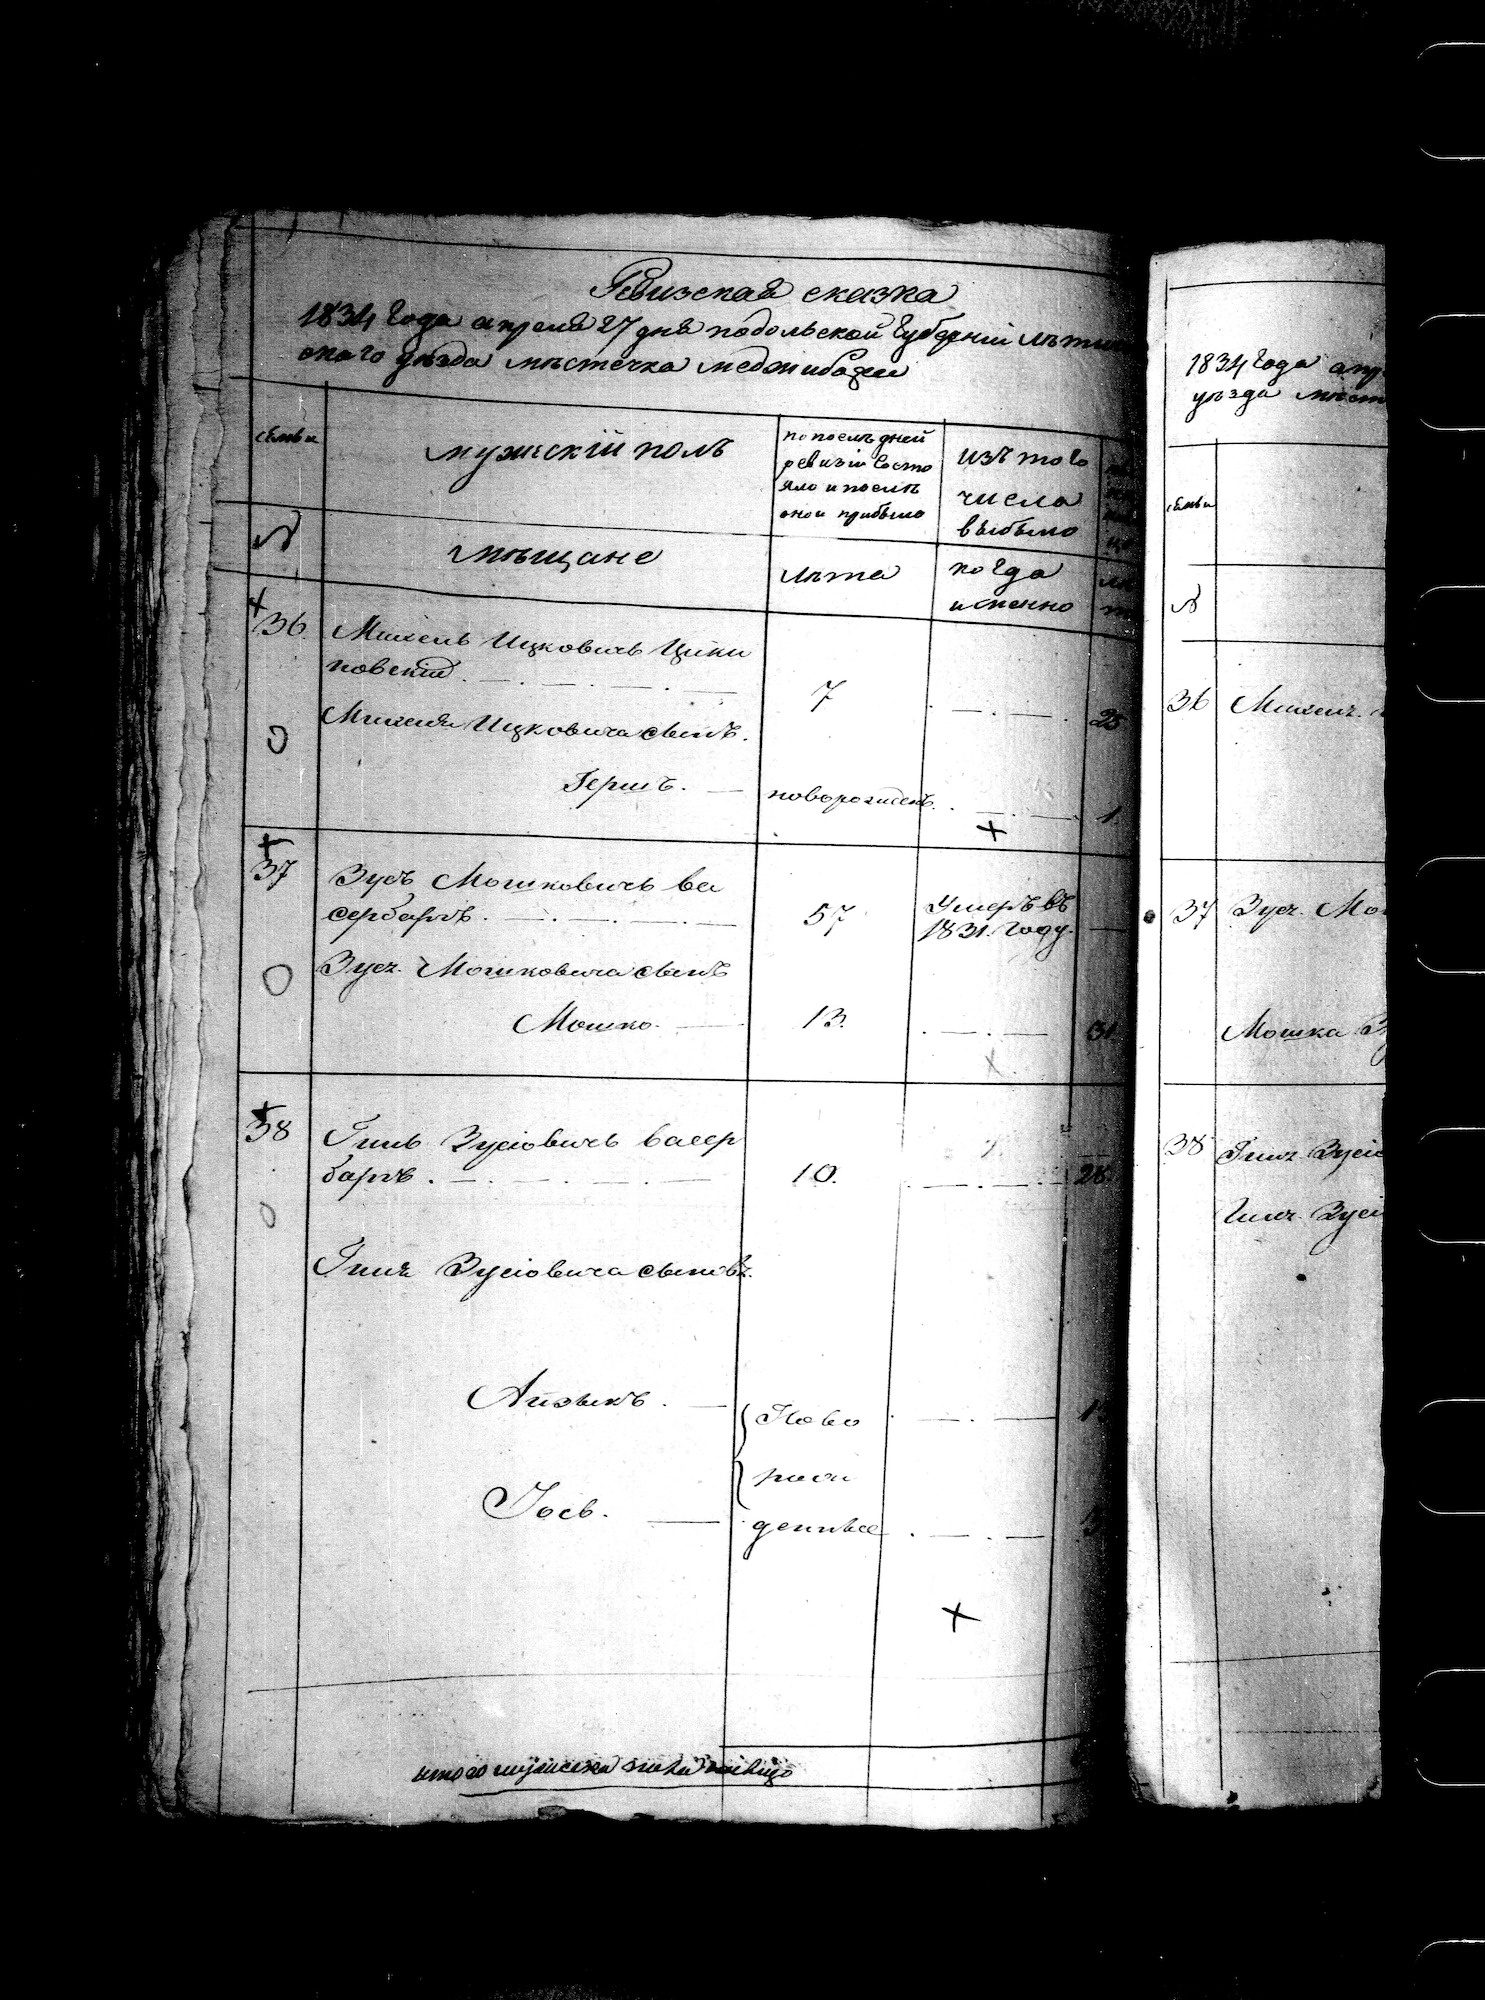 Ревизская сказка
1834 года апреля 27 дня подольской Губерніи
ского уѣзда мѣстечка меджибожа
семьи
мужескій полъ
по послѣдней
ревизіи Состо
яло и послѣ
оной прибыло
изъ того
числа
выбыло
№
мѣщане
лѣта
когда
именно
36
Михель Ицковичь
новскій
7
25
Михеля Ицковича сынъ.
Гершъ.
новорожденъ.
1
37
Зусь Мошковичь ва
сербартъ.
57
Умеръ въ
1831. году.
Зуся Мошковича сынъ
Мошко.
13.
31
38
Зусіовичь васер
бартъ.
10.
26
Зусіовича сыновья.
Айзыкъ.
Ново
рож
денные
Іось.
3
итого мужеска пола на лицо
1834 Года апр
уѣзда мѣст
семьи
№
36
Михеля
37
Зуся Мо
Мошка З
38
Зусіо
Зусі